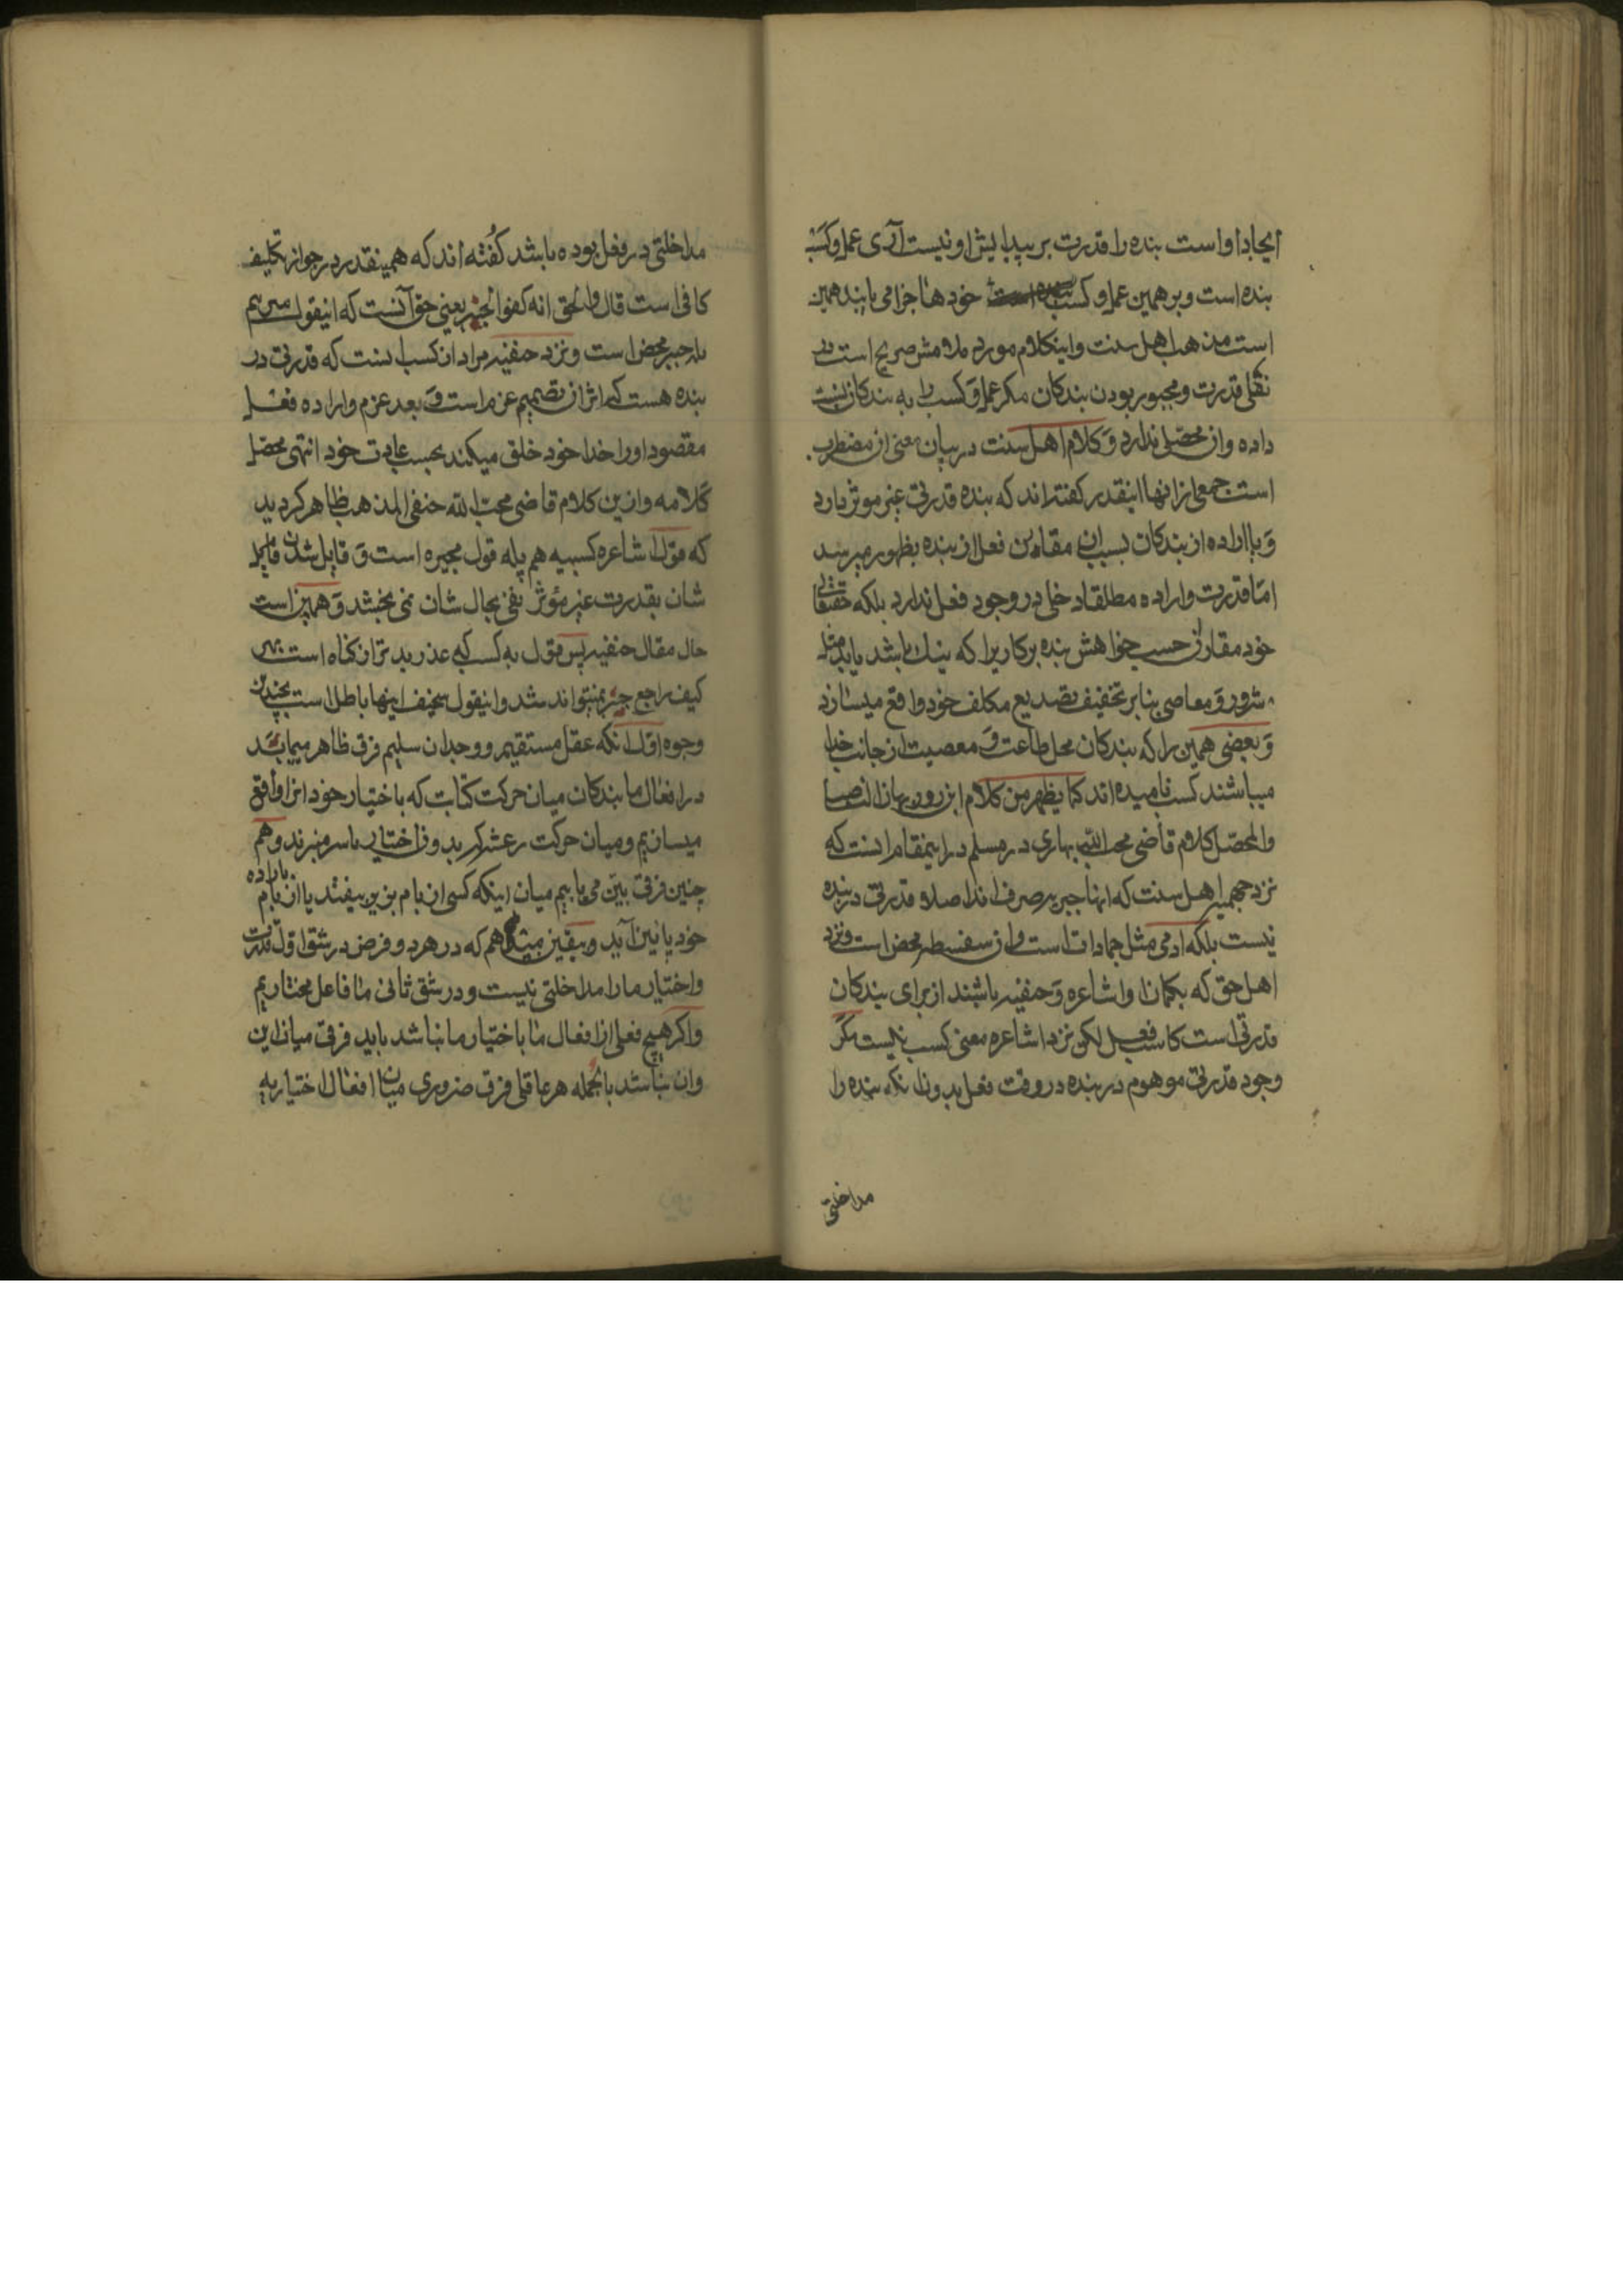 ایجاد او است بنده را قدرت بر پیدایش او نیست آری عمل و کسب
بنده است و بر همین عمل و کسب خودها جزا می یابند همین
است مذهب اهل سنت و اینکلام مورد ملامش صریح است در
نفی قدرت و مجبور بودن بندکان مکر عمل و کسب را به بندکان نسبت
داده و ان محصلی ندارد و کلام اهل سنت در بیان معنی ان مضطرب
است جمعی از انها اینقدر کفته اند که بنده قدرتی غیر موثر دارد
و با اراده از بندکان بسبب ان مقارن فعل از بنده بظهور میرسد
اما قدرت و اراده مطلقا دخلی در وجود فعل ندارد بلکه حقتعالی
خود مقارن حسب خواهش بنده بر کاریرا که نیک باشد یا بد مثل
شرور و معاصی بنابر تخفیف تصدیع مکلف خود واقع میسازد
و بعضی همین را که بندکان محل طاعت و معصیت از جانب خدا
میباشند کسب نامیده اند کما یظهر من کلام ابن روزبهان
والمحصل کلام قاضی محب الله بهاری در مسلم در اینمقام انست که
نزد جهمیه اهل سنت که انها جبریه صرف اند اصلا قدرتی در بنده
نیست بلکه ادمی مثل جمادات است و ان سفسطه محض است و نزد
اهل حق که بکمان او اشاعره و حنفیه باشند از برای بندکان
قدرتی است کاسب فعل لکن نزد اشاعره معنی کسب نیست مکر
وجود قدرتی موهوم در بنده در وقت فعل بدون انکه بنده را
مداخلتی
مداخلتی در فعل بوده باشد کفته اند که همینقدر در جواز تکلیف
کافی است قال والحق انه کفو الجبر یعنی حق آنست که اینقول
بلجبر محض است و نزد حنفیه مراد ان کسب انست که قدرتی در
بنده هست که اثر ان تصمیم عزم است و بعد عزم و اراده فعل
مقصود او را خدا خود خلق میکند بحسب عادت خود انتهی محصل
کلامه و ازین کلام قاضی محب الله حنفی المذهب ظاهر کردید
که قول اشاعره کسبیه هم پله قول مجبره است و قایل شدن
شان بقدرت غیر مؤثر نفعی بحال شان نمی بخشد و همین است
حال مقال حنفیه پس قول به کسب که عذر بدتر از کناه است بهر
کیف راجع جبر نمیتواند شد و اینقول سخیف اینها باطل است بچندین
وجوه اول انکه عقل مستقیم و وجدان سلیم فرق ظاهر مییابد
در افعال ما بندکان میان حرکت کتابت که باختیار خود انرا واقع
میسازیم و میان حرکت رعشه که بدون اختیار ما سر میزند و هم
چنین فرقی بین می یابیم میان اینکه کسی از بام بزیر بیفتد یا از بام باراده
خود پایین آید و بیقین میدانیم که در هر دو فرض در شق اول قدرت
و اختیار ما را مداخلتی نیست و در شق ثانی ما فاعل مختاریم
و اکر هیچ فعلی از افعال ما باختیار ما نباشد باید فرقی میان این
و ان نباشد بالجمله هر عاقلی فرق ضروری میان افعال اختیاریه